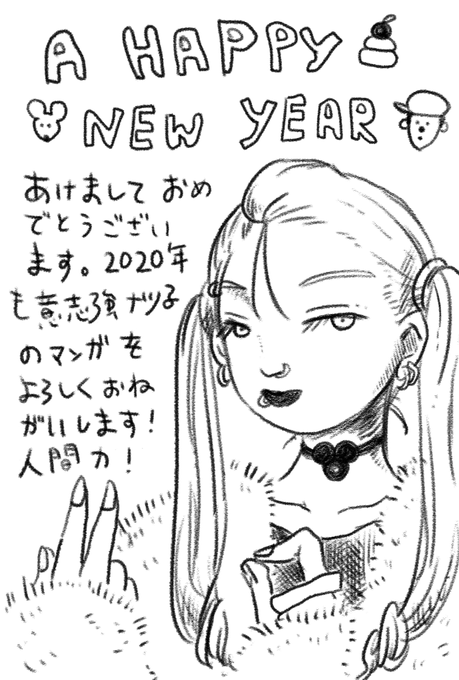 A HAPPY
NEW YEAR
あけまして おめ
でとうござい
ます。2020年
も意志強ナツ子
のマンガを
よろしくおね
がいします!
人間力!